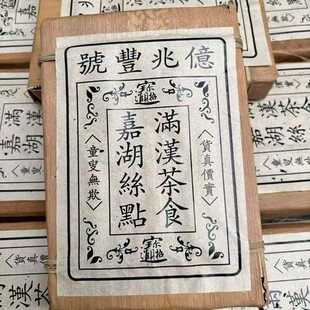 億兆豐號
〈貨真價實〉
滿漢茶食
嘉湖絲點
〈童叟無欺〉